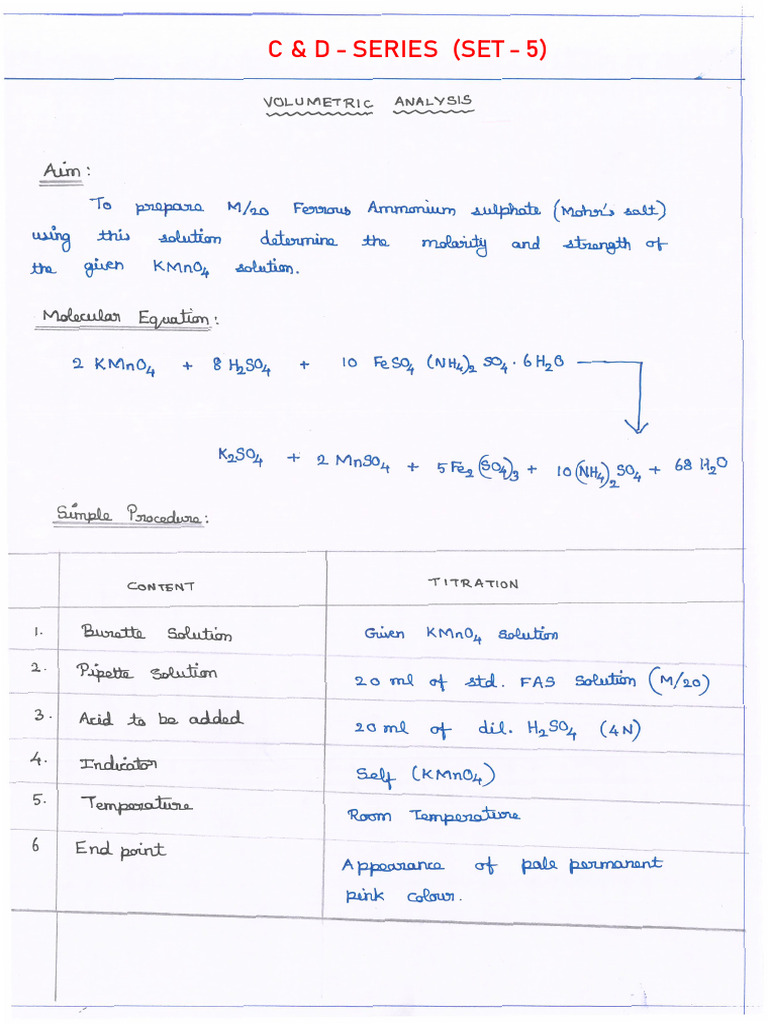 C & D – SERIES (SET – 5)
VOLUMETRIC ANALYSIS
Aim:
To prepare M/20 Ferrous Ammonium sulphate (Mohr's salt)
using this solution determine the molarity and strength of
the given KMnO₄ solution.
Molecular Equation:
2 KMnO₄ + 8 H₂SO₄ + 10 FeSO₄ (NH₄)₂ SO₄ · 6H₂O
K₂SO₄ + 2 MnSO₄ + 5Fe₂(SO₄)₃ + 10(NH₄)₂SO₄ + 68 H₂O
Simple Procedure:
CONTENT TITRATION
1. Burette Solution Given KMnO₄ Solution
2. Pipette Solution 20 ml of std. FAS Solution (M/20)
3. Acid to be added 20 ml of dil. H₂SO₄ (4N)
4. Indicator Self (KMnO₄)
5. Temperature Room Temperature
6 End point Appearance of pale permanent
pink colour.